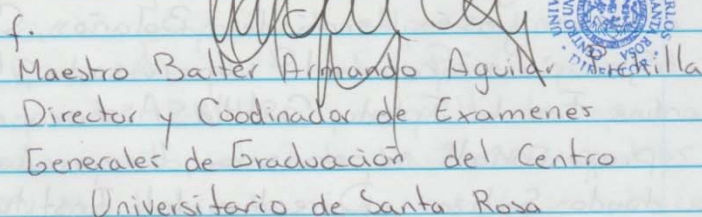 f.
Maestro Balter Armando Aguilar
Director y Coodinador de Examenes
Generales de Graduación del Centro
Universitario de Santa Rosa
CARLOS
SANTA ROSA